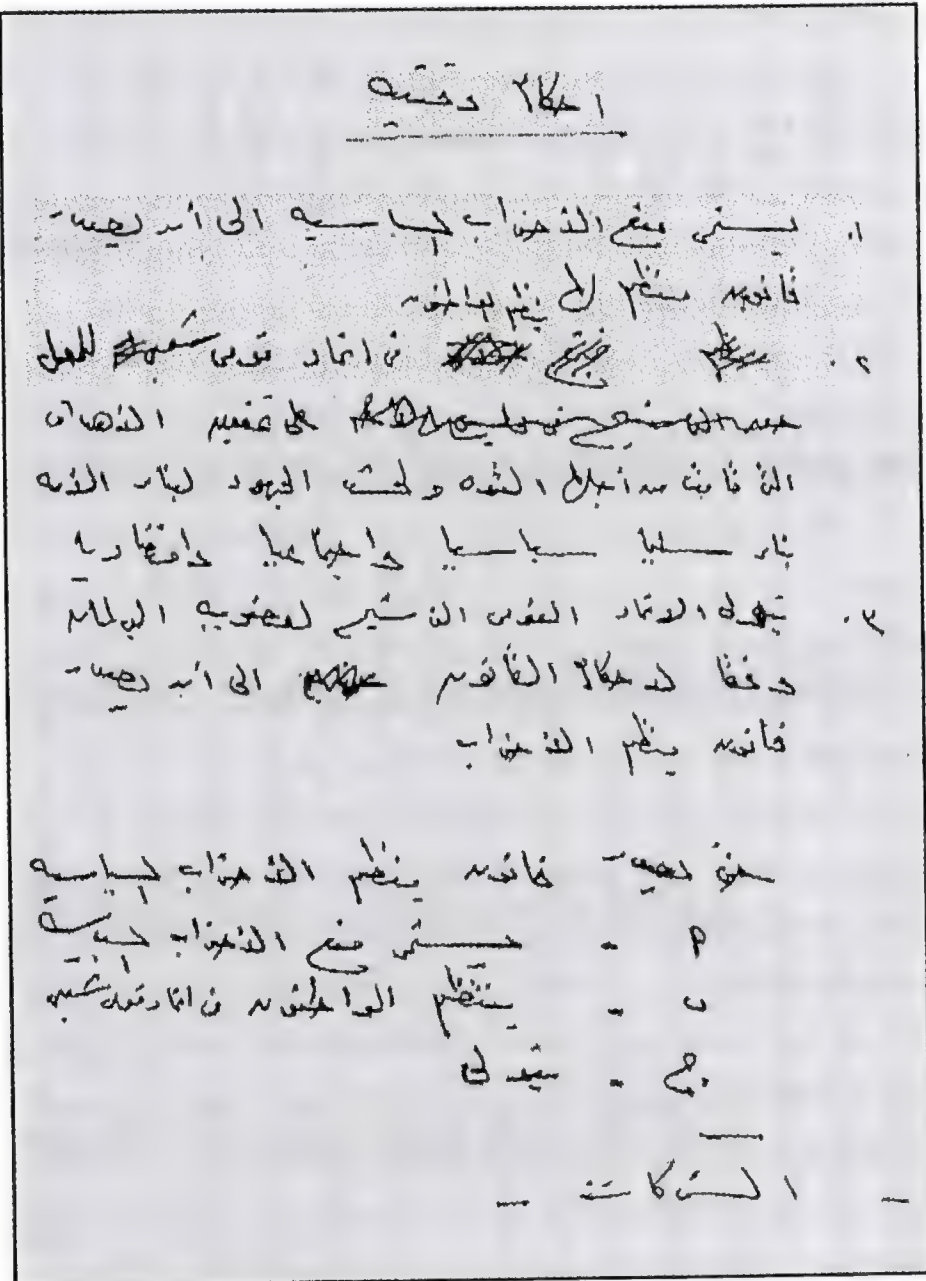 احكام وقتيه
١. يستمر منع الأحزاب السياسيه الى أن يصدر
قانون ينظم
٢. في اتحاد قومى شعبى للعمل
على تحقيق الأهداف
التى قامت من أجلها الثوره ولحث الجهود لبناء الأمه
بناء سليما سياسيا واجتماعيا واقتصاديه
٣. يتولى الاتحاد القومى الترشيح لعضويه البرلمان
وفقا لاحكام القانون الى أن يصدر
قانون ينظم الأحزاب
حتى يصدر قانون ينظم الأحزاب السياسيه
م - يستمر منع الأحزاب السياسيه
ب - ينتظم المواطنون فى اتحاد قومى شعبى
ج - يتولى
- الشركات -